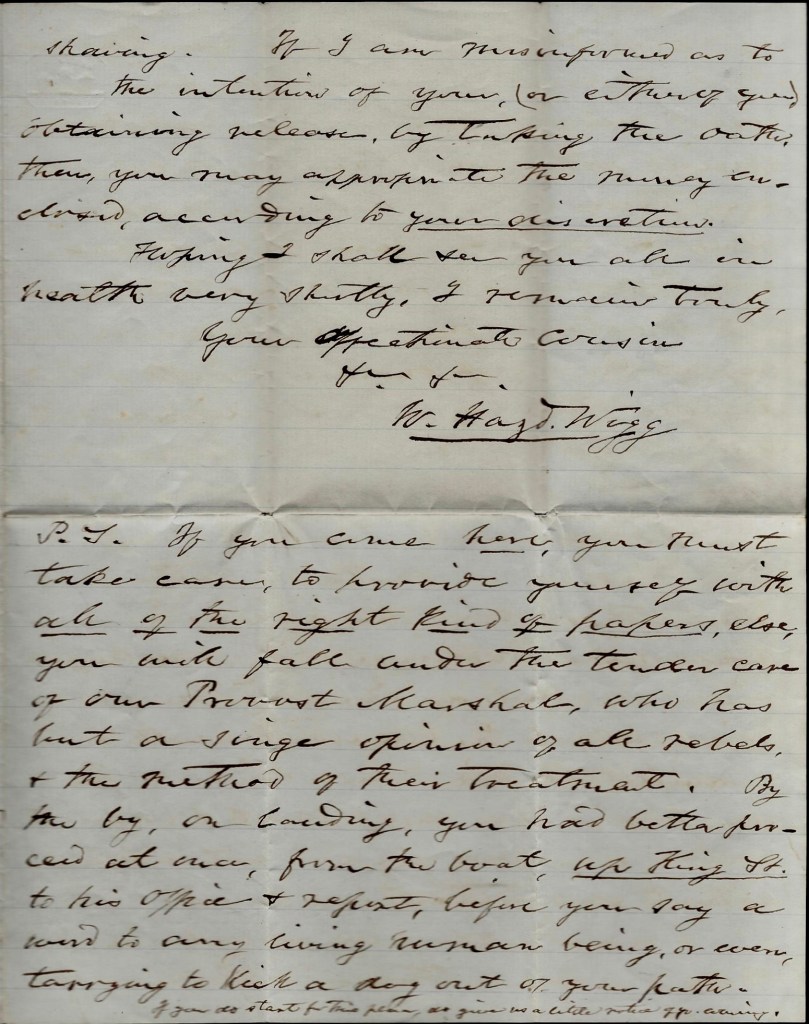 shaving. If I am misinformed as to
the intention of your, (or either of you)
obtaining release, by taking the oath,
then, you may appropriate the money en-
closed, according to your discretion.
Hoping I shall see you all in
health very shortly, I remain truly,
Your affectionate Cousin
&c &c.
W. Hazd. Wigg
P.S. If you come here, you must
take care, to provide yourself with
all of the right kind of papers, else,
you will fall under the tender care
of our Provost Marshal, who has
but a singe opinion of all rebels,
& the method of their treatment. By
the by, on landing, you had better pro-
ceed at once, from the boat, up King St.
to his Office & report, before you say a
word to any living human being, or even,
tarrying to Kick a dog out of your path.
If you do start for this place, do give us a little notice of yr. coming.